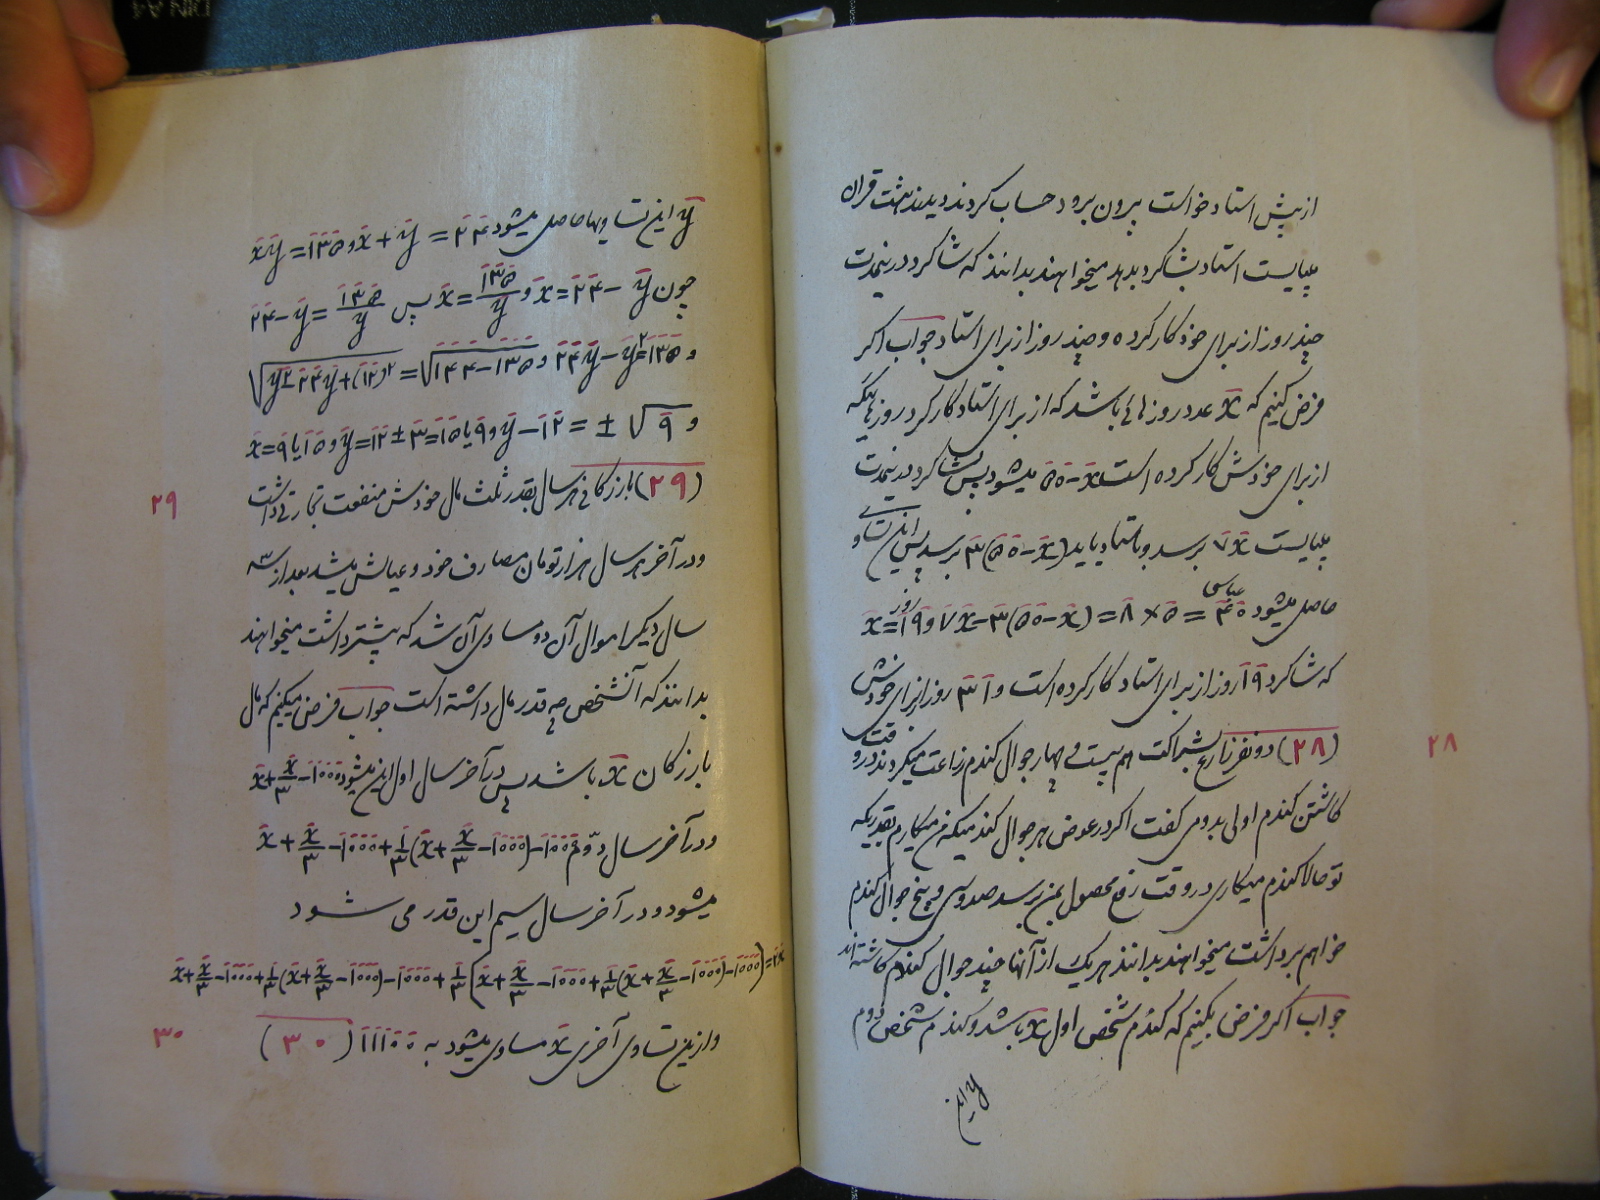 از پیش استاد خواست بیرون برود حساب کردند دیدند هشت قران
میبایست استاد بشاکرد بدهد میخواهند بدانند که شاکرد در اینمدت
چند روز از برای خود کار کرده و چند روز از برای استاد جواب اکر
فرض کنیم که x عدد روزهائی باشد که از برای استاد کار کرد روزهائیکه
از برای خودش کار کرده است ۵۰-x میشود پس بشاکرد در اینمدت
میبایست ۷x برسد و باستاد باید (۵۰-x)۳ برسد پس این تساوی
حاصل میشود ۴۰ عباسی = ۵ × ۸ = (۵۰-x)۳-۷x و ۱۹ روز = x
که شاکرد ۱۹ روز از برای استاد کار کرده است و ۳۱ روز از برای خودش
۲۸
(۲۸) دو نفر زارع بشراکت هم بیست و چهار جوال کندم زراعت میکردند در وقت
کاشتن کندم اولی بدومی کفت اکر در عوض هر جوال کندمیکه من میکارم بقدریکه
تو حالا کندم میکاری در وقت رفع محصول بمن برسد صد و سی و پنج جوال کندم
خواهم برداشت میخواهند بدانند هر یک از آنها چند جوال کندم کاشته اند
جواب اکر فرض بکنیم که کندم شخص اول x باشد و کندم شخص دوم
y این
y این تساویها حاصل میشود ۲۴ = x + y و xy = ۱۳۵
چون x = ۲۴ - y و x = ۱۳۵/y پس ۲۴-y = ۱۳۵/y
و ۲۴y - y² = ۱۳۵ و √(y² - ۲۴y + (۱۲)²) = √(۱۴۴-۱۳۵)
و y - ۱۲ = ± √۹ و y = ۱۲ ± ۳ = ۱۵ یا ۹ و x = ۹ یا ۱۵
۲۹
(۲۹) بازرکانی هر سال بقدر ثلث مال خودش منفعت تجارتی داشت
و در آخر هر سال هزار تومان مصارف خود و عیالش میشد بعد از سه
سال دیکر اموال آن دو مساوی آن شد که پیشتر داشت میخواهند
بدانند که آنشخص چه قدر مال داشته است جواب فرض میکنیم که مال
بازرکان x باشد پس در آخر سال اول این میشود x + x/۳ - ۱۰۰۰
و در آخر سال دوم x + x/۳ - ۱۰۰۰ + ۱/۳(x + x/۳ - ۱۰۰۰) - ۱۰۰۰
میشود و در آخر سال سیم این قدر می شود
x + x/۳ - ۱۰۰۰ + ۱/۳(x + x/۳ - ۱۰۰۰) - ۱۰۰۰ + ۱/۳[x + x/۳ - ۱۰۰۰ + ۱/۳(x + x/۳ - ۱۰۰۰) - ۱۰۰۰] = ۲x
۳۰
و از این تساوی آخری x مساوی میشود به ۱۱۱۰۰ (۳۰)